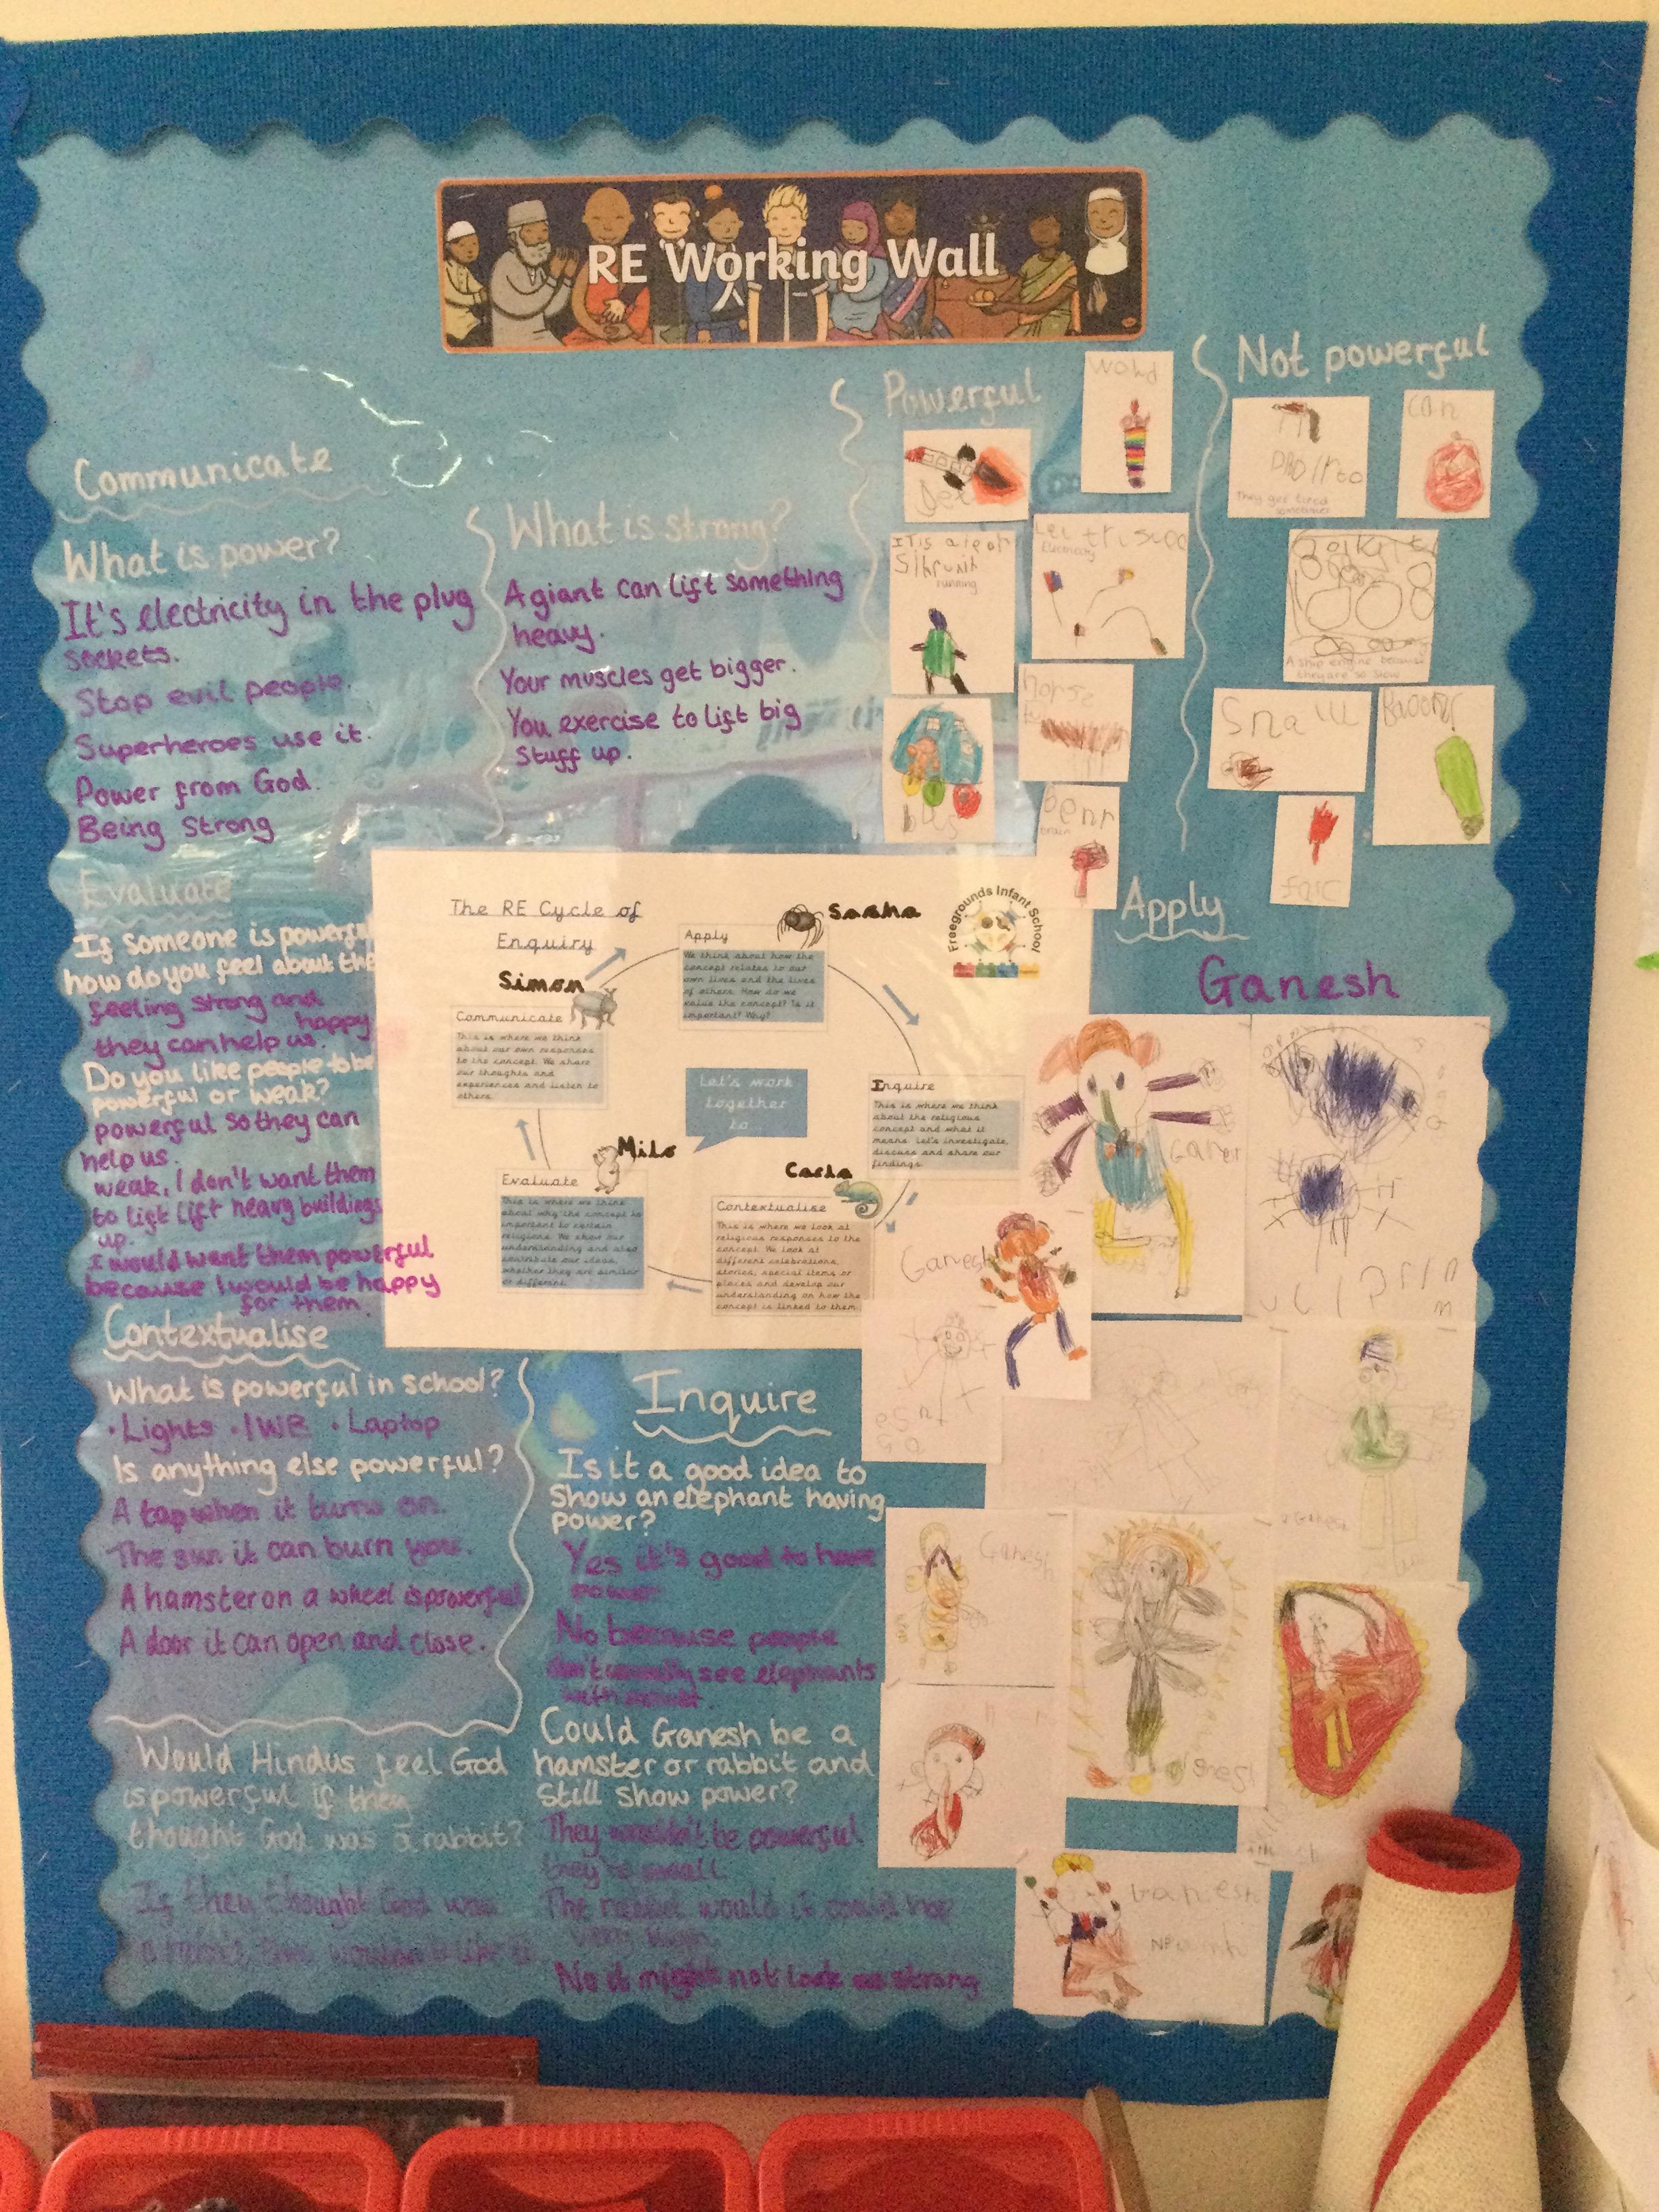 RE Working Wall
Communicate
What is power?
It's electricity in the plug
sockets.
Stop evil people.
Superheroes use it.
Power from God.
Being Strong
What is strong?
A giant can lift something
heavy.
Your muscles get bigger.
You exercise to lift big
Stuff up.
Powerful
world
Jet
IT is a leon
running
Electricity
horse
bus
brain
Not powerful
They get tired
sometimes
can
A ship engine because
they are so slow
Evaluate
If someone is powerful
how do you feel about the
feeling strong and
happy
they can help us.
Do you like people to be
powerful or weak?
powerful so they can
help us.
weak, I don't want them
to lift lift heavy buildings
up.
I would want them powerful
because I would be happy
for them.
The RE Cycle of
Enquiry
Simon
Communicate
This is where we think
about our own responses
to the concept. We share
our thoughts and
experiences and listen to
others.
Sasha
Apply
We think about how the
concept relates to our
own lives and the lives
of others. How do we
value the concept? Is it
important? Why?
Freegrounds Infant School
Let's work
together
to...
Inquire
This is where we think
about the religious
concept and what it
means. Let's investigate,
discuss and share our
findings.
Milo
Evaluate
This is where we think
about why the concept is
important to certain
religions. We show our
understanding and also
contribute our ideas,
whether they are similar
or different.
Carla
Contextualise
This is where we look at
religious responses to the
concept. We look at
different celebrations,
stories, special items or
places and develop our
understanding on how the
concept is linked to them.
Apply
Ganesh
Ganesh
Contextualise
What is powerful in school?
· Lights · IWB · Laptop
Is anything else powerful?
A tap when it turns on.
The sun it can burn you.
A hamster on a wheel is powerful
A door it can open and close.
Would Hindus feel God
is powerful if they
thought God was a rabbit?
If they thought God was
Inquire
Is it a good idea to
Show an elephant having
power?
Yes it's good to have
power
No because people
don't usually see elephants
Could Ganesh be a
hamster or rabbit and
still show power?
They wouldn't be powerful
they're small
The rabbit would it could hop
very high.
No it might not look as strong
Ganesh
Ganesh